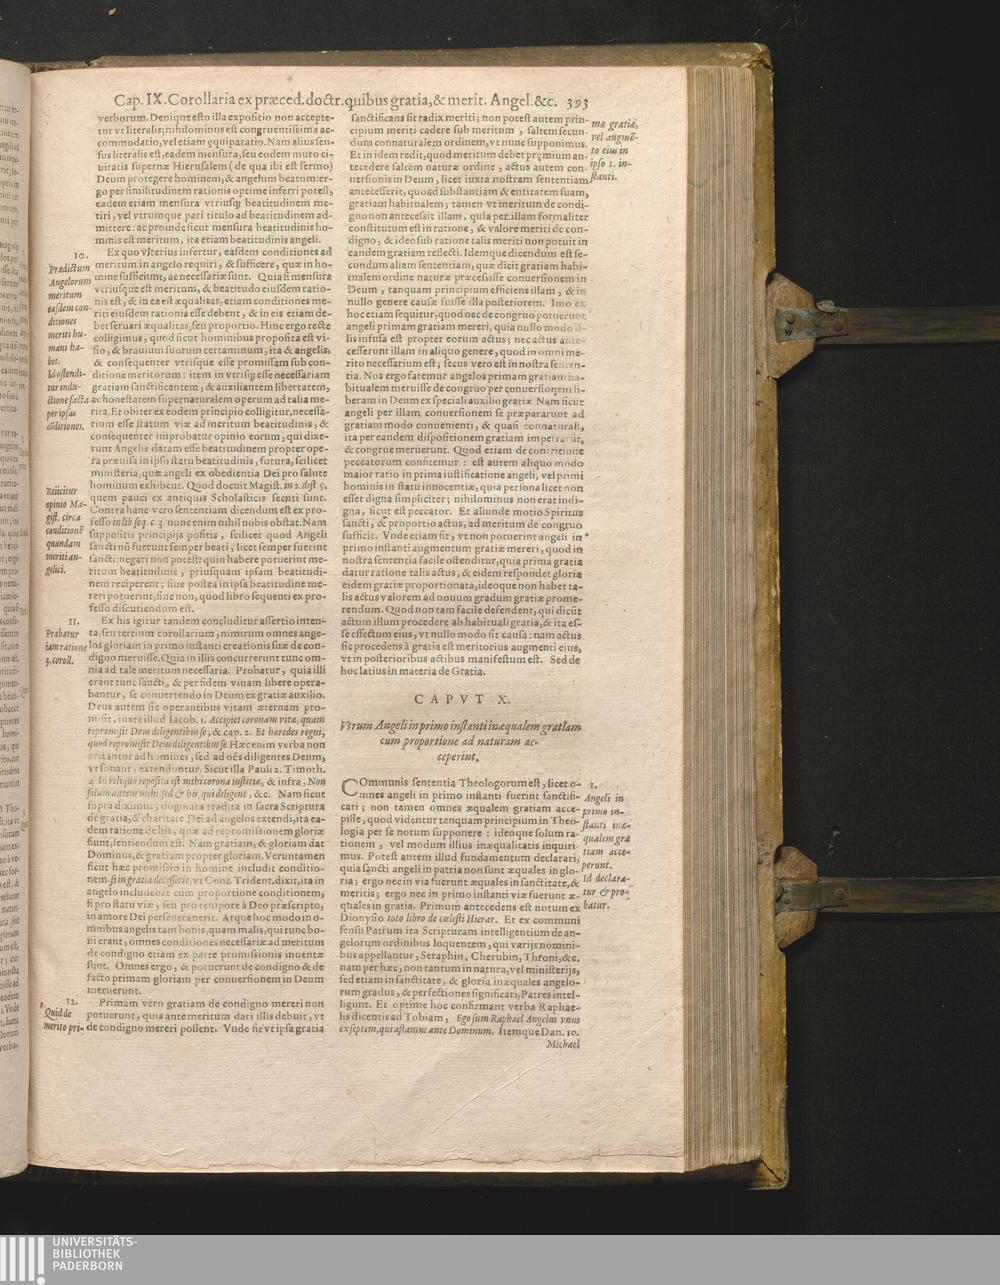 Cap. IX. Corollaria ex præced. doctr. quibus gratia, & merit. Angel. &c. 393
verborum. Denique esto illa expositio non accepte-
tur vt literalis; nihilominus est congruentissima ac-
commodatio, vel etiam ęquiparatio. Nam alius sen-
sus literalis est, eadem mensura, seu eodem muro ci-
uitatis supernæ Hierusalem (de qua ibi est sermo)
Deum protegere hominem; & angelum beatum: er-
go per similitudinem rationis optime inferri potest,
eadem etiam mensura vtriusq; beatitudinem me-
tiri, vel vtrumque pari titulo ad beatitudinem ad-
mittere: ac proinde sicut mensura beatitudinis ho-
minis est meritum, ita etiam beatitudinis angeli.
10.
Prædictum
Angelorum
meritum
easdem con-
ditiones
meriti hu-
mani ha-
bet.
Id ostendi-
tur indu-
ctione facta
per ipsas
cōditiones.
Ex quo vlterius infertur, easdem conditiones ad
meritum in angelo requiri, & sufficere, quæ in ho-
mine sufficiunt, ac necessariæ sunt. Quia si mensura
vtriusque est meritum, & beatitudo eiusdem ratio-
nis est, & in ea est æqualitas, etiam conditiones me-
riti eiusdem rationis esse debent, & in eis etiam de-
bet seruari æqualitas, seu proportio. Hinc ergo recte
colligimus, quod sicut hominibus proposita est vi-
sio, & brauium suorum certaminum, ita & angelis,
& consequenter vtrisque esse promissam sub con-
ditione meritorum: item in vtrisq; esse necessariam
gratiam sanctificantem, & auxiliantem libertatem,
ac honestatem supernaturalem operum ad talia me-
rita. Et obiter ex eodem principio colligitur, necessa-
rium esse statum viæ ad meritum beatitudinis, &
consequenter improbatur opinio eorum, qui dixe-
runt Angelis datam esse beatitudinem propter ope-
ra præuisa in ipso statu beatitudinis, futura, scilicet
ministeria, quæ angeli ex obedientia Dei pro salute
hominum exhibent. Quod docuit Magist. in 2. dist. 5.
Reiicitur
opinio Ma-
gist. circa
conditionē
quandam
meriti an-
gelici.
quem pauci ex antiquis Scholasticis secuti sunt.
Contra hanc vero sententiam dicendum est ex pro-
fesso in lib. seq. c. 3. nunc enim nihil nobis obstat. Nam
suppositis principijs positis, scilicet quod Angeli
sancti nō fuerunt semper beati, licet semper fuerint
sancti: negari non potest: quin habere potuerint me-
ritum beatitudinis, priusquam ipsam beatitudi-
nem reciperent; siue postea in ipsa beatitudine me-
reri potuerint, siue non, quod libro sequenti ex pro-
fesso discutiendum est.
11.
Probatur
iam ratione
3. coroll.
Ex his igitur tandem concluditur assertio inten-
ta, seu tertium corollarium, nimirum omnes ange-
los gloriam in primo instanti creationis suæ de con-
digno meruisse. Quia in illis concurrerunt tunc om-
nia ad tale meritum necessaria. Probatur, quia illi
erant tunc sancti, & per fidem viuam libere opera-
bantur, se conuertendo in Deum ex gratiæ auxilio.
Deus autem sic operantibus vitam æternam pro-
misit, iuxta illud Iacob. 1. Accipiet coronam vitæ, quam
repromisit Deus diligentibus se, & cap. 2. Et hæredes regni,
quod repromisit Deus diligentibus se. Hæc enim verba non
arctantur ad homines, sed ad oēs diligentes Deum,
vt sonant, extenduntur. Sicut illa Pauli 2. Timoth.
4. In reliquo reposita est mihi corona iustitiæ, & infra, Non
solum autem mihi sed & his, qui diligent, &c. Nam sicut
supra diximus, dogmata tradita in sacra Scriptura
de gratia, & charitate Dei ad angelos extendi, ita ea-
dem ratione de his, quæ ad repromissionem gloriæ
fiunt, sentiendum est. Nam gratiam, & gloriam dat
Dominus, & gratiam propter gloriam. Veruntamen
sicut hæc promissio in homine includit conditio-
nem, si in gratia decesserit, vt Conc. Trident. dixit, ita in
angelo includebat cum proportione conditionem,
si pro statu viæ, seu pro tempore à Deo præscripto,
in amore Dei perseuerauerit. Atque hoc modo in o-
mnibus angelis tam bonis, quam malis, qui tunc bo-
ni erant, omnes conditiones necessariæ ad meritum
de condigno etiam ex parte promissionis inuentæ
sunt. Omnes ergo, & potuerunt de condigno & de
facto primam gloriam per conuersionem in Deum
meruerunt.
12.
Quid de
merito pri-
Primam vero gratiam de condigno mereri non
potuerunt, quia ante meritum dari illis debuit, vt
de condigno mereri possent. Vnde fit vt ipsa gratia
sanctificans sit radix meriti; non potest autem prin-
cipium meriti cadere sub meritum, saltem secun-
dum connaturalem ordinem, vt nunc supponimus.
Et in idem redit, quod meritum debet pręmium an-
tecedere saltem naturæ ordine, actus autem con-
uersionis in Deum, licet iuxta nostram sententiam
antecesserit, quoad substantiam & entitatem suam,
gratiam habitualem; tamen vt meritum de condi-
gno non antecessit illam, quia per illam formaliter
constitutum est in ratione, & valore meriti de con-
digno, & ideo sub ratione talis meriti non potuit in
eandem gratiam reflecti. Idemque dicendum est se-
cundum aliam sententiam, quæ dicit gratiam habi-
tualem ordine naturæ præcessisse conuersionem in
Deum, tanquam principium efficiens illam, & in
nullo genere causæ fuisse illa posteriorem. Imo ex
hoc etiam sequitur, quod nec de congruo potuerint
angeli primam gratiam mereri, quia nullo modo il-
lis infusa est propter eorum actus; nec actus ante-
cesserunt illam in aliquo genere, quod in omni me-
rito necessarium est; secus vero est in nostra senten-
tia. Nos ergo fatemur angelos primam gratiam ha-
bitualem meruisse de congruo per conuersionem li-
beram in Deum ex speciali auxilio gratiæ. Nam sicut
angeli per illam conuersionem se præpararunt ad
gratiam modo conuenienti, & quasi connaturali,
ita per eandem dispositionem gratiam impetrarūt,
& congrue meruerunt. Quod etiam de contritione
peccatorum confitemur: est autem aliquo modo
maior ratio in prima iustificatione angeli, vel primi
hominis in statu innocentiæ, quia persona licet non
esset digna simpliciter; nihilominus non erat indi-
gna, sicut est peccator. Et aliunde motio Spiritus
sancti, & proportio actus, ad meritum de congruo
sufficit. Vnde etiam fit, vt non potuerint angeli in
primo instanti augmentum gratiæ mereri, quod in
nostra sententia facile ostenditur, quia prima gratia
datur ratione talis actus, & eidem respondet gloria
eidem gratiæ proportionata, ideoque non habet ta-
lis actus valorem ad nouum gradum gratiæ prome-
rendum. Quod non tam facile defendent, qui dicūt
actum illum procedere ab habituali gratia, & ita es-
se effectum eius, vt nullo modo sit causa: nam actus
sic procedens à gratia est meritorius augmenti eius,
vt in posterioribus actibus manifestum est. Sed de
hoc latius in materia de Gratia.
mæ gratiæ,
vel augmē-
to eius in
ipso 1. in-
stanti.
CAPVT X.
Vtrum Angeli in primo instanti inæqualem gratiam
cum proportione ad naturam ac-
ceperint.
Communis sententia Theologorum est, licet o-
mnes angeli in primo instanti fuerint sanctifi-
cati; non tamen omnes æqualem gratiam acce-
pisse, quod videntur tanquam principium in Theo-
logia per se notum supponere: ideoque solum ra-
tionem, vel modum illius inæqualitatis inquiri-
mus. Potest autem illud fundamentum declarari,
quia sancti angeli in patria non sunt æquales in glo-
ria; ergo nec in via fuerunt æquales in sanctitate, &
meritis; ergo nec in primo instanti viæ fuerunt æ-
quales in gratia. Primum antecedens est notum ex
Dionysio toto libro de cœlesti Hierar. Et ex communi
sensu Patrum ita Scripturam intelligentium de an-
gelorum ordinibus loquentem, qui varijs nomini-
bus appellantur, Seraphin, Cherubin, Throni, &c.
nam per hæc, non tantum in natura, vel ministerijs,
sed etiam in sanctitate, & gloria inæquales angelo-
rum gradus, & perfectiones significari, Patres intel-
ligunt. Et optime hoc confirmant verba Raphae-
lis dicentis ad Tobiam, Ego sum Raphael Angelus vnus
ex septem, qui astamus ante Dominum. Itemque Dan. 10.
Michael
1.
Angeli in
primo in-
stanti inæ-
qualem gra
tiam acce-
perunt.
Id declara-
tur & pro-
batur.
UNIVERSITÄTS-
BIBLIOTHEK
PADERBORN